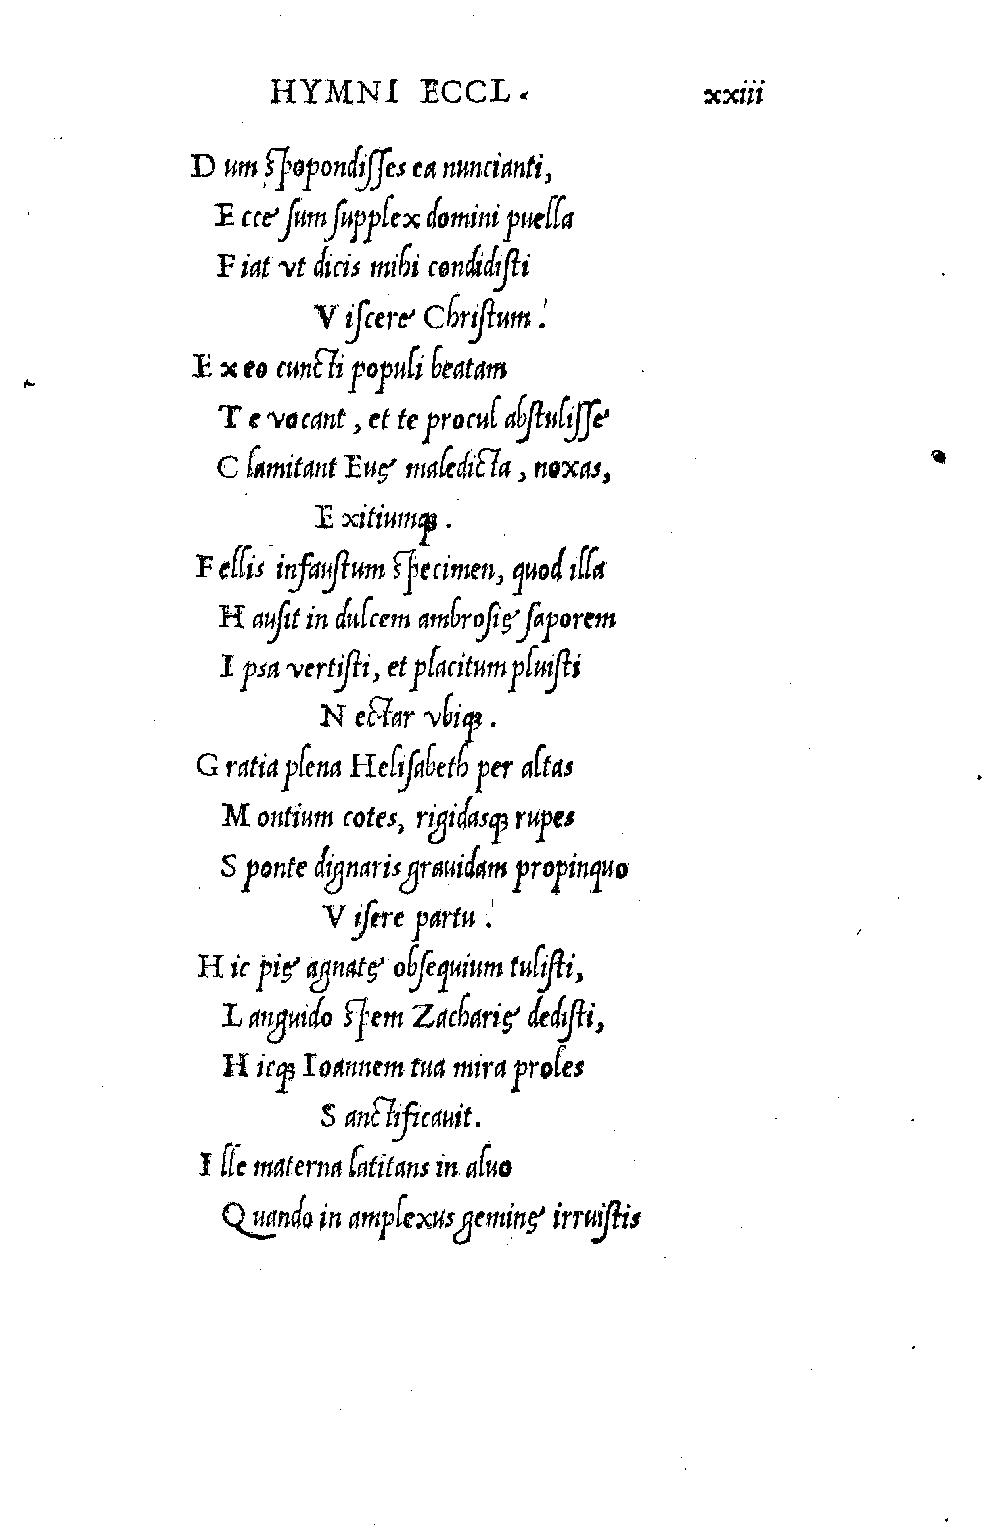 HYMNI ECCL. xxiii
Dum ſpopondiſſes ea nuncianti,
Ecce ſum ſupplex domini puella
Fiat vt dicis mihi condidiſti
Viſcere Chriſtum.
Ex eo cuncti populi beatam
Te vocant, et te procul abſtuliſſe
Clamitant Euę maledicta, noxas,
Exitiumq;.
Fellis infauſtum ſpecimen, quod illa
Hauſit in dulcem ambroſię ſaporem
Ipsa vertiſti, et placitum pluiſti
Nectar vbiq;.
Gratia plena Heliſabeth per altas
Montium cotes, rigidasq; rupes
Sponte dignaris grauidam propinquo
Viſere partu.
Hic pię agnatę obſequium tuliſti,
Languido ſpem Zacharię dediſti,
Hicq; Ioannem tua mira proles
Sanctificauit.
Ille materna latitans in aluo
Quando in amplexus geminę irruiſtis